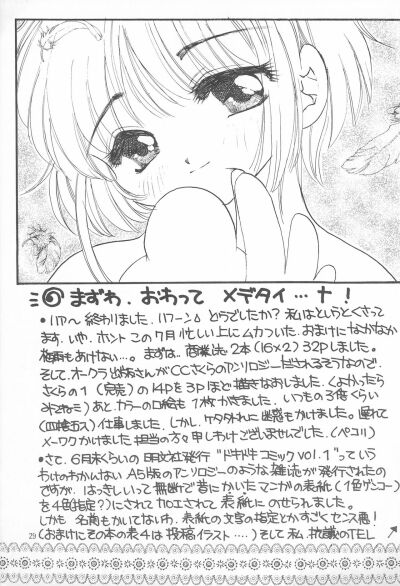 まずわ、おわって メデタイ…ナ!
・いや~ 終わりました、 どうでしたか? 私はというとくさって
ます。いや、ホント この7月 忙しい上に ムカついた。おまけに なかなか
梅雨もあけない…。まずは、商業誌 2本(16×2) 32Pしました。
そして、オークラ出版さんが CCさくらのアンソロジーだされるそうなので、
さくらの1 (完売)の14Pを 3Pほど 描きなおしました。(よかったら
みてネ) あと、カラーの口絵も 1枚かきました。 いつもの 3倍くらい
仕事しました。しかし、ケタタガイに 迷惑もかけました。遅れて
メーワクかけました担当の方々 申しわけございませんでした。(ペコリ)
・さて、6月末くらいの 日文社発行 "ドキドキコミック vol.1"ってい
うわけのわかんない A5版のアンソロジーのような 雑誌が 発行されたの
ですが、はっきしいって 無断で 昔にかいたマンガの表紙 (1色ゲンコー)
を 4色指定?)にされて 加工されて 表紙に のせられました。
しかも、名前もかいてないわ、表紙の文字の指定とかすごくセンス悪!
(おまけに その本の表4は 投稿イラスト……) そして 私、抗議のTEL
29